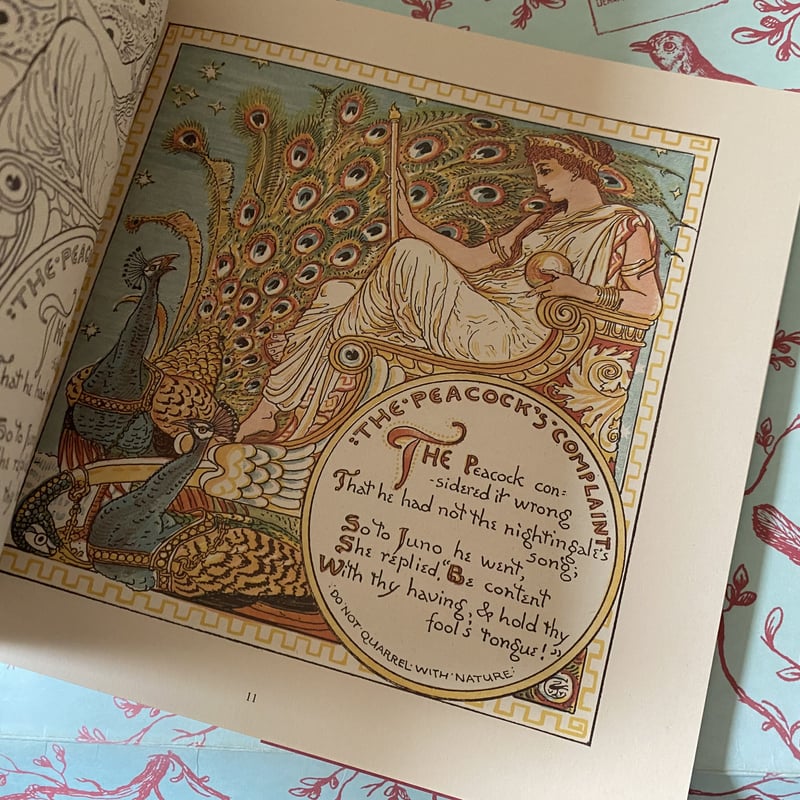 :THE·PEACOCK'S·COMPLAINT
THE Peacock con=
-sidered it wrong
That he had not the nightingale's
song;
So to Juno he went,
She replied, "Be content
With thy having, & hold thy
fool's tongue!"
:DO·NOT·QUARREL·WITH·NATURE:
11
:THE·PEAC